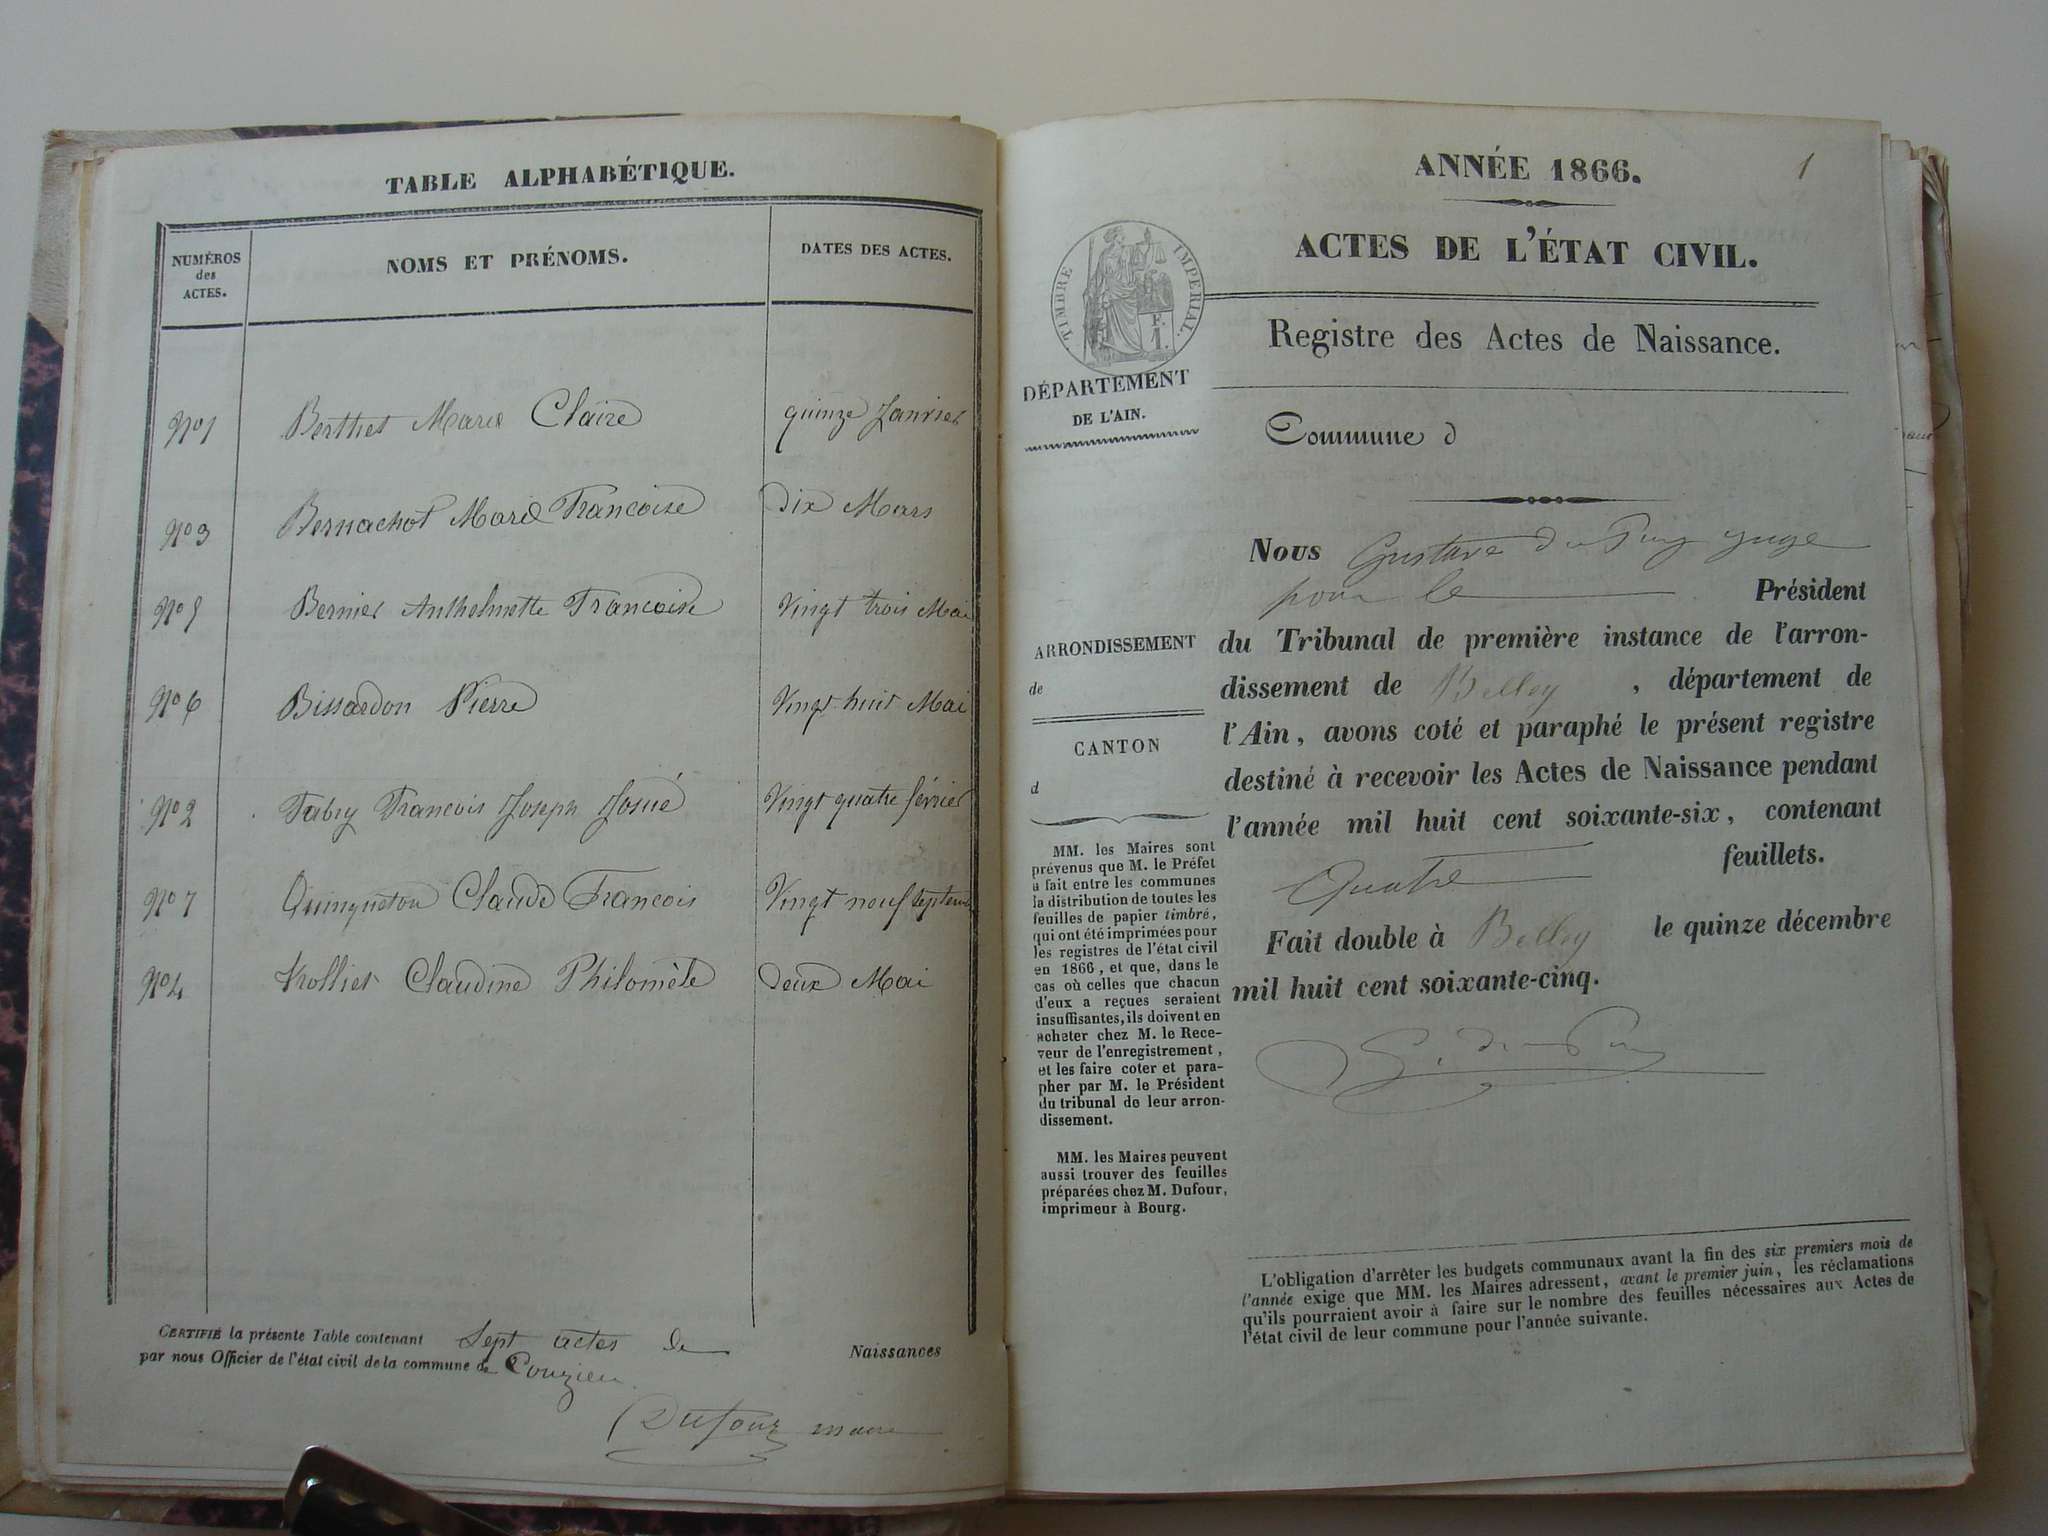 TABLE ALPHABÉTIQUE.
NUMÉROS
des
ACTES.
NOMS ET PRÉNOMS.
DATES DES ACTES.
No 1 Berthet Marie Claire quinze Janvier
No 3 Bernachot Marie Francoise Dix Mars
No 5 Bernier Anthelmette Francoise Vingt trois Mai
No 6 Bissardon Pierre Vingt huit Mai
No 2 Fabry Francois Joseph Josué Vingt quatre février
No 7 Quinqueton Claude Francois Vingt neuf septem
No 4 Trollier Claudine Philomèle Deux Mai
CERTIFIÉ la présente Table contenant Sept actes de Naissances
par nous Officier de l'état civil de la commune de Couzieu
Dufour maire
1
ANNÉE 1866.
ACTES DE L'ÉTAT CIVIL.
TIMBRE IMPERIAL.
F.
1.
Registre des Actes de Naissance.
DÉPARTEMENT
DE L'AIN.
Commune d
Nous Gustave du Puy juge
pour le Président
du Tribunal de première instance de l'arron-
dissement de Belley , département de
l'Ain, avons coté et paraphé le présent registre
destiné à recevoir les Actes de Naissance pendant
l'année mil huit cent soixante-six, contenant
Quatre feuillets.
Fait double à Belley le quinze décembre
mil huit cent soixante-cinq.
G. du Puy
ARRONDISSEMENT
de
CANTON
d
MM. les Maires sont
prévenus que M. le Préfet
a fait entre les communes
la distribution de toutes les
feuilles de papier timbré,
qui ont été imprimées pour
les registres de l'état civil
en 1866, et que, dans le
cas où celles que chacun
d'eux a reçues seraient
insuffisantes, ils doivent en
acheter chez M. le Rece-
veur de l'enregistrement,
et les faire coter et para-
pher par M. le Président
du tribunal de leur arron-
dissement.
MM. les Maires peuvent
aussi trouver des feuilles
préparées chez M. Dufour,
imprimeur à Bourg.
L'obligation d'arrêter les budgets communaux avant la fin des six premiers mois de
l'année exige que MM. les Maires adressent, avant le premier juin, les réclamations
qu'ils pourraient avoir à faire sur le nombre des feuilles nécessaires aux Actes de
l'état civil de leur commune pour l'année suivante.